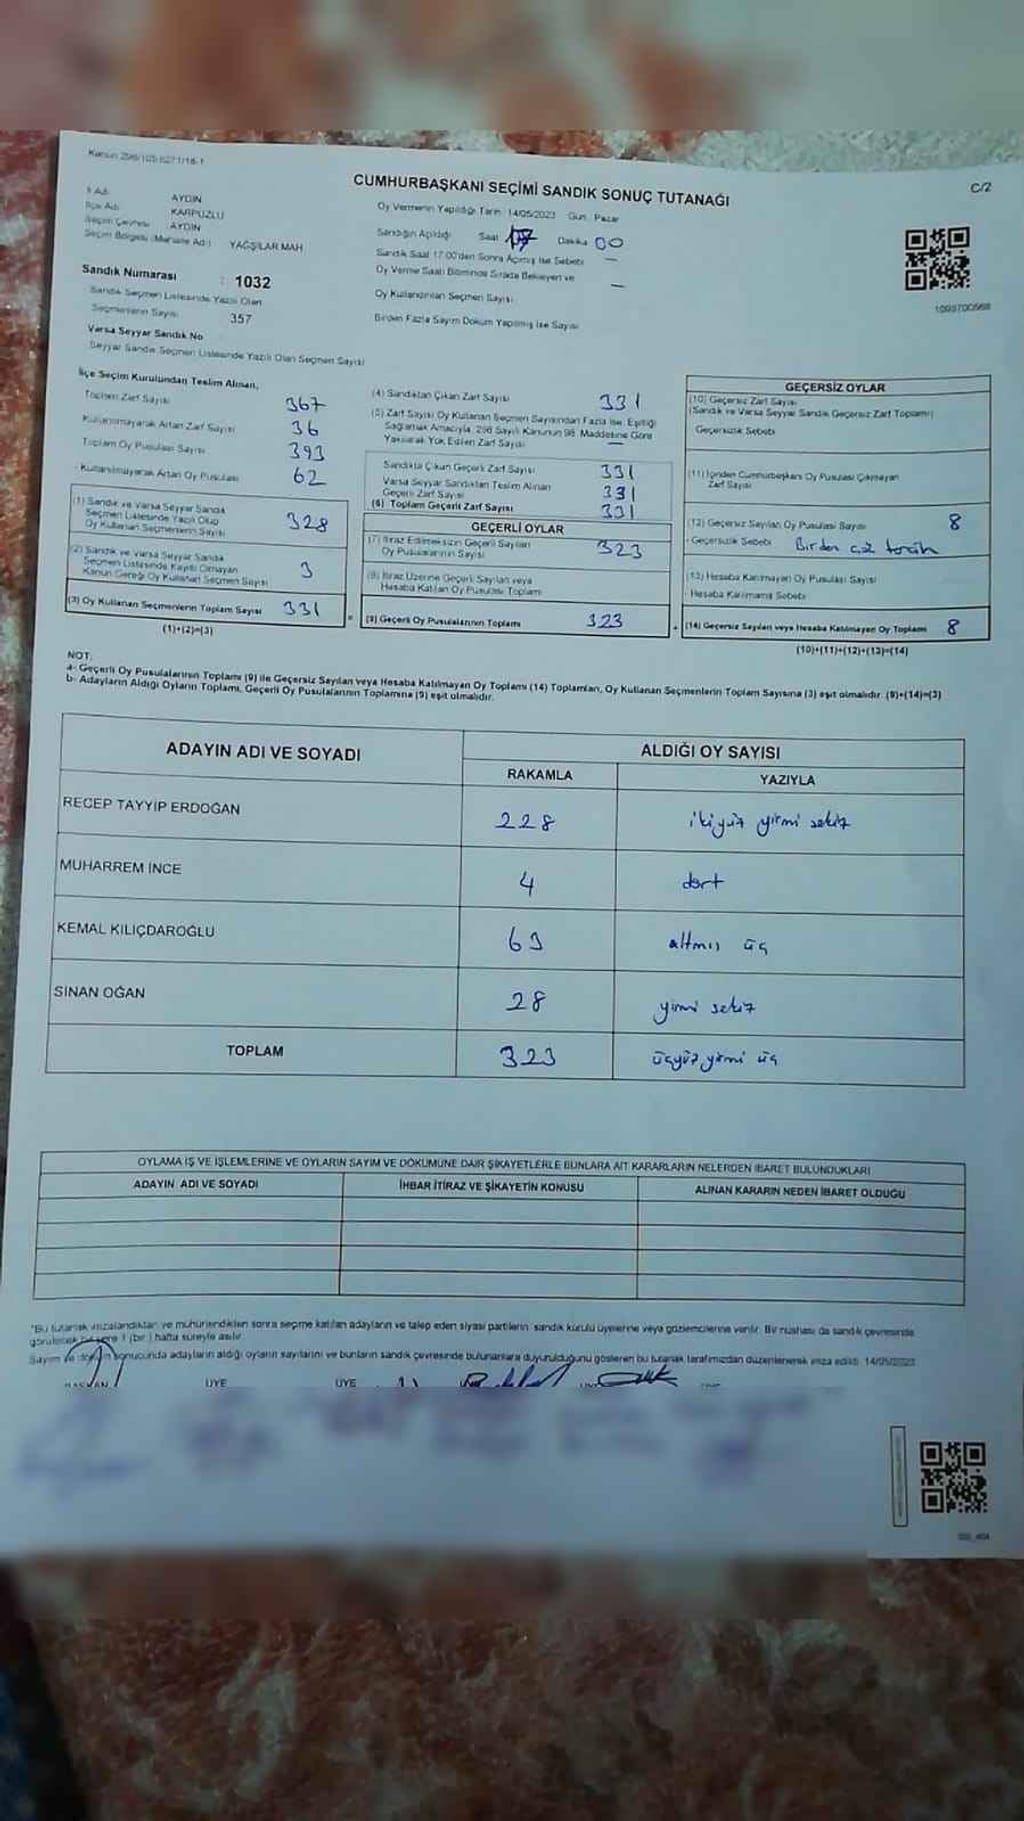 Kanun 298/105 6271/18-1
CUMHURBAŞKANI SEÇİMİ SANDIK SONUÇ TUTANAĞI
C/2
İl Adı AYDIN
İlçe Adı KARPUZLU
Seçim Çevresi AYDIN
Seçim Bölgesi (Mahalle Adı) YAĞŞILAR MAH
Oy Vermenin Yapıldığı Tarih 14/05/2023 Gün Pazar
Sandığın Açıldığı Saat 17 Dakika 00
Sandık Saat 17.00'den Sonra Açılmış İse Sebebi —
Oy Verme Saati Bitiminde Sırada Bekleyen ve —
Oy Kullandırılan Seçmen Sayısı
Birden Fazla Sayım Döküm Yapılmış İse Sayısı
Sandık Numarası : 1032
Sandık Seçmen Listesinde Yazılı Olan
Seçmenlerin Sayısı 357
Varsa Seyyar Sandık No
Seyyar Sandık Seçmen Listesinde Yazılı Olan Seçmen Sayısı
1093700568
İlçe Seçim Kurulundan Teslim Alınan,
Toplam Zarf Sayısı 367
Kullanılmayarak Artan Zarf Sayısı 36
Toplam Oy Pusulası Sayısı 393
Kullanılmayarak Artan Oy Pusulası 62
(1) Sandık ve Varsa Seyyar Sandık
Seçmen Listesinde Yazılı Olup
Oy Kullanan Seçmenlerin Sayısı 328
(2) Sandık ve Varsa Seyyar Sandık
Seçmen Listesinde Kayıtlı Olmayan
Kanun Gereği Oy Kullanan Seçmen Sayısı 3
(3) Oy Kullanan Seçmenlerin Toplam Sayısı 331
(1)+(2)=(3)
(4) Sandıktan Çıkan Zarf Sayısı 331
(5) Zarf Sayısı Oy Kullanan Seçmen Sayısından Fazla İse, Eşitliği
Sağlamak Amacıyla, 298 Sayılı Kanunun 98. Maddesine Göre
Yakılarak Yok Edilen Zarf Sayısı —
Sandıkta Çıkan Geçerli Zarf Sayısı 331
Varsa Seyyar Sandıktan Teslim Alınan
Geçerli Zarf Sayısı 331
(6) Toplam Geçerli Zarf Sayısı 331
GEÇERLİ OYLAR
(7) İtiraz Edilmeksizin Geçerli Sayılan
Oy Pusulalarının Sayısı 323
(8) İtiraz Üzerine Geçerli Sayılan veya
Hesaba Katılan Oy Pusulası Toplamı
(9) Geçerli Oy Pusulalarının Toplamı 323
GEÇERSİZ OYLAR
(10) Geçersiz Zarf Sayısı
(Sandık ve Varsa Seyyar Sandık Geçersiz Zarf Toplamı)
Geçersizlik Sebebi
(11) İçinden Cumhurbaşkanı Oy Pusulası Çıkmayan
Zarf Sayısı
(12) Geçersiz Sayılan Oy Pusulası Sayısı 8
- Geçersizlik Sebebi Birden çok tercih
(13) Hesaba Katılmayan Oy Pusulası Sayısı
- Hesaba Katılmama Sebebi
(14) Geçersiz Sayılan veya Hesaba Katılmayan Oy Toplamı 8
(10)+(11)+(12)+(13)=(14)
NOT:
a- Geçerli Oy Pusulalarının Toplamı (9) ile Geçersiz Sayılan veya Hesaba Katılmayan Oy Toplamı (14) Toplamları, Oy Kullanan Seçmenlerin Toplam Sayısına (3) eşit olmalıdır. (9)+(14)=(3)
b- Adayların Aldığı Oyların Toplamı, Geçerli Oy Pusulalarının Toplamına (9) eşit olmalıdır.
ADAYIN ADI VE SOYADI ALDIĞI OY SAYISI
RAKAMLA YAZIYLA
RECEP TAYYİP ERDOĞAN 228 ikiyüz yirmi sekiz
MUHARREM İNCE 4 dört
KEMAL KILIÇDAROĞLU 63 altmış üç
SİNAN OĞAN 28 yirmi sekiz
TOPLAM 323 üçyüz yirmi üç
OYLAMA İŞ VE İŞLEMLERİNE VE OYLARIN SAYIM VE DÖKÜMÜNE DAİR ŞİKAYETLERLE BUNLARA AİT KARARLARIN NELERDEN İBARET BULUNDUKLARI
ADAYIN ADI VE SOYADI İHBAR İTİRAZ VE ŞİKAYETİN KONUSU ALINAN KARARIN NEDEN İBARET OLDUĞU
*Bu tutanak imzalandıktan ve mühürlendikten sonra seçime katılan adayların ve talep eden siyasi partilerin sandık kurulu üyelerine veya gözlemcilerine verilir. Bir nüshası da sandık çevresinde
görülecek bir yere 1 (bir) hafta süreyle asılır.
Sayım ve döküm sonucunda adayların aldığı oyların sayılarını ve bunların sandık çevresinde bulunanlara duyurulduğunu gösteren bu tutanak tarafımızdan düzenlenerek imza edildi. 14/05/2023
BAŞKAN ÜYE ÜYE